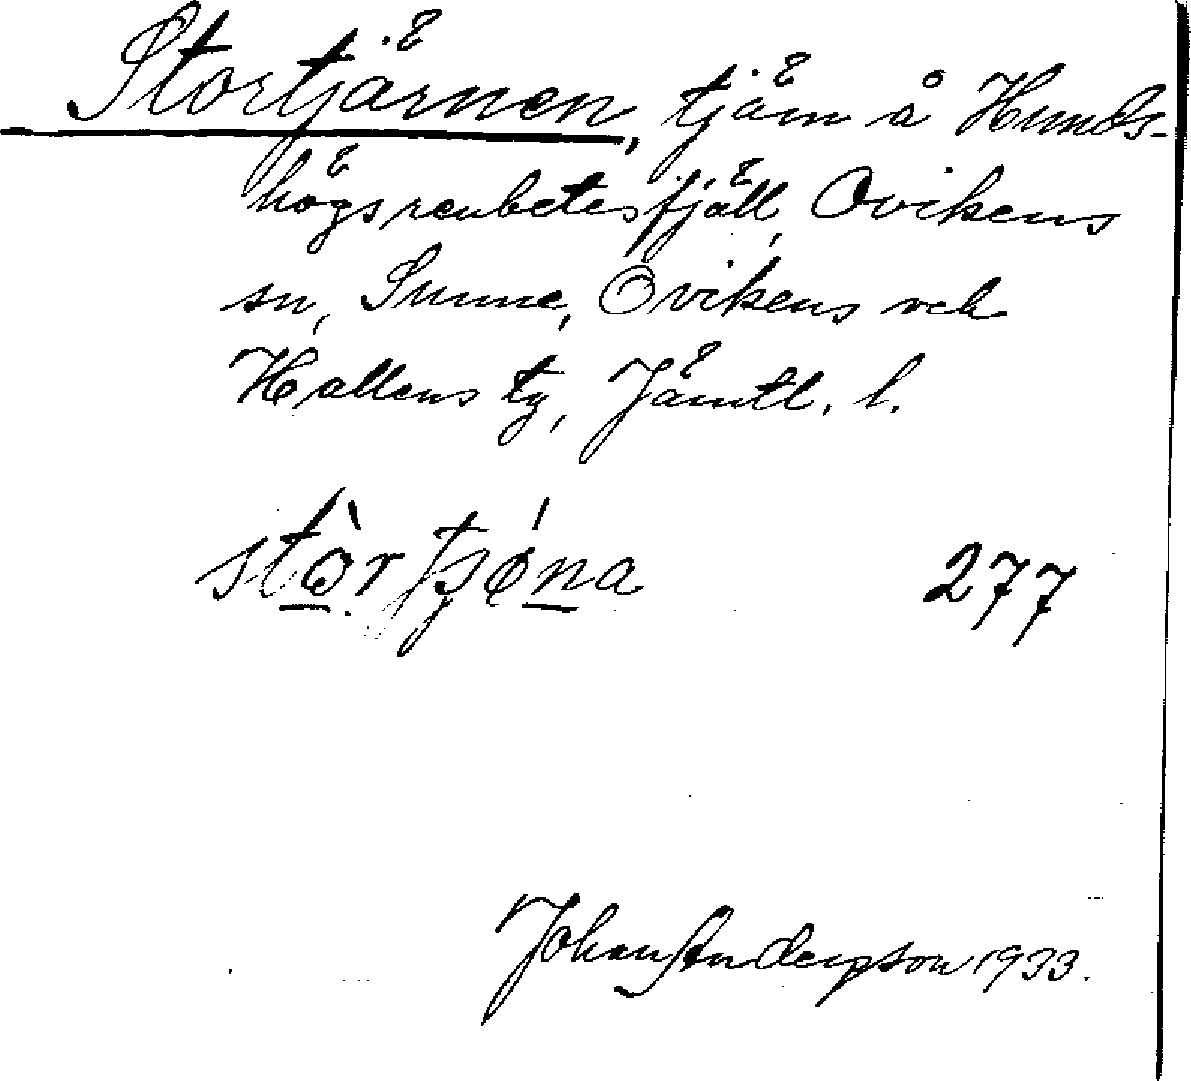 Stortjärnen, tjärn å Hunds-
högsrenbetesfjäll, Ovikens
sn, Sunne, Ovikens och
Hallens tg, Jämtl. l.
stòrtjǿna 277
Johan Anderson 1933.